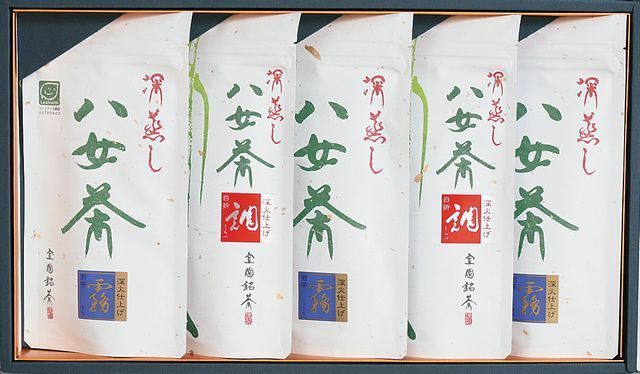 深蒸し
八女茶
深火仕上げ
霧
煎茶
室園銘茶
深蒸し
八女茶
深火仕上げ
白折
調
しらべ
室園銘茶
深蒸し
八女茶
深火仕上げ
霧
煎茶
深蒸し
八女茶
深火仕上げ
白折
調
しらべ
室園銘茶
深蒸し
八女茶
深火仕上げ
霧
煎茶